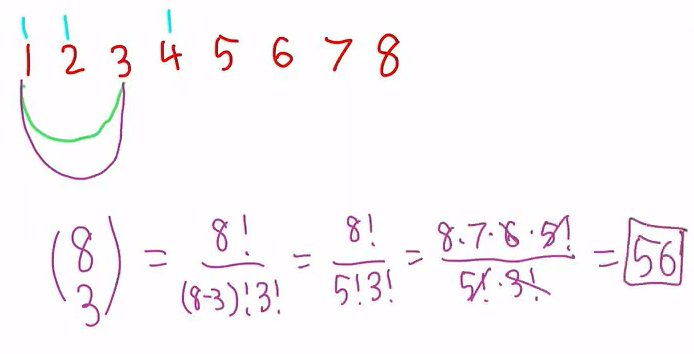 1 2 3 4 5 6 7 8
(8 3) = 8! / (8-3)!3! = 8! / 5!3! = 8·7·6·5! / 5!·3! = 56